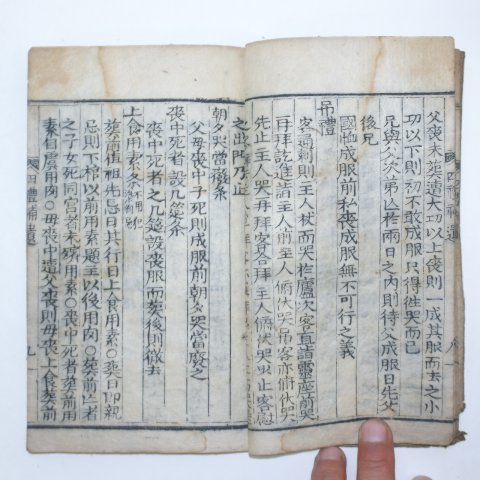 父喪未葬遭大功以上喪則一成其服而去之小
功以下則不敢成服只得往哭而已
兄與父次第以若兩日之內則待父成服日先父
後兄
吊禮
國恤成服前私喪成服無不可行之義
客通刺則主人杖而哭於廬次客直詣靈座前哭
再拜訖進詣主人前主人俯伏哭吊客亦俯伏哭
先止主人哭再拜客答拜主人俯伏哭吊止客慰
之出門乃止
朝夕哭當廢条
父母喪中子死則成服前朝夕哭當廢之
喪中死者設几筵条
喪中死者之几筵設喪服而葬後則撤去
上食用素条
葬前值祖先忌日其行日上食用素〇葬日卽親
忌則下棺以前用素題主以後用肉〇葬前亡者
之子女死同宮者未殯用素〇喪中死者葬前用
素自虞用肉〇母喪中遭父喪則母喪上食葬前用
四禮補遺
九